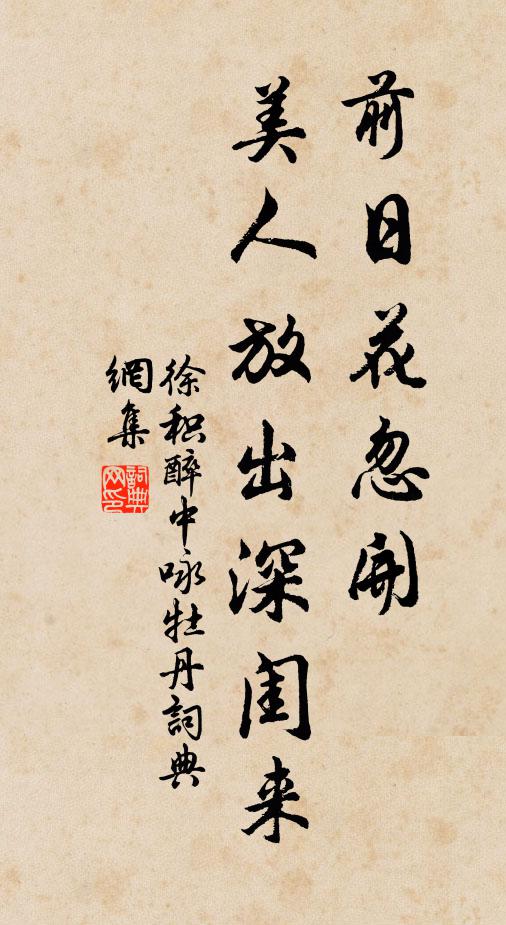 前日花忽开
美人放出深闺来
徐积醉中咏牡丹詞典
網集
詞典網印